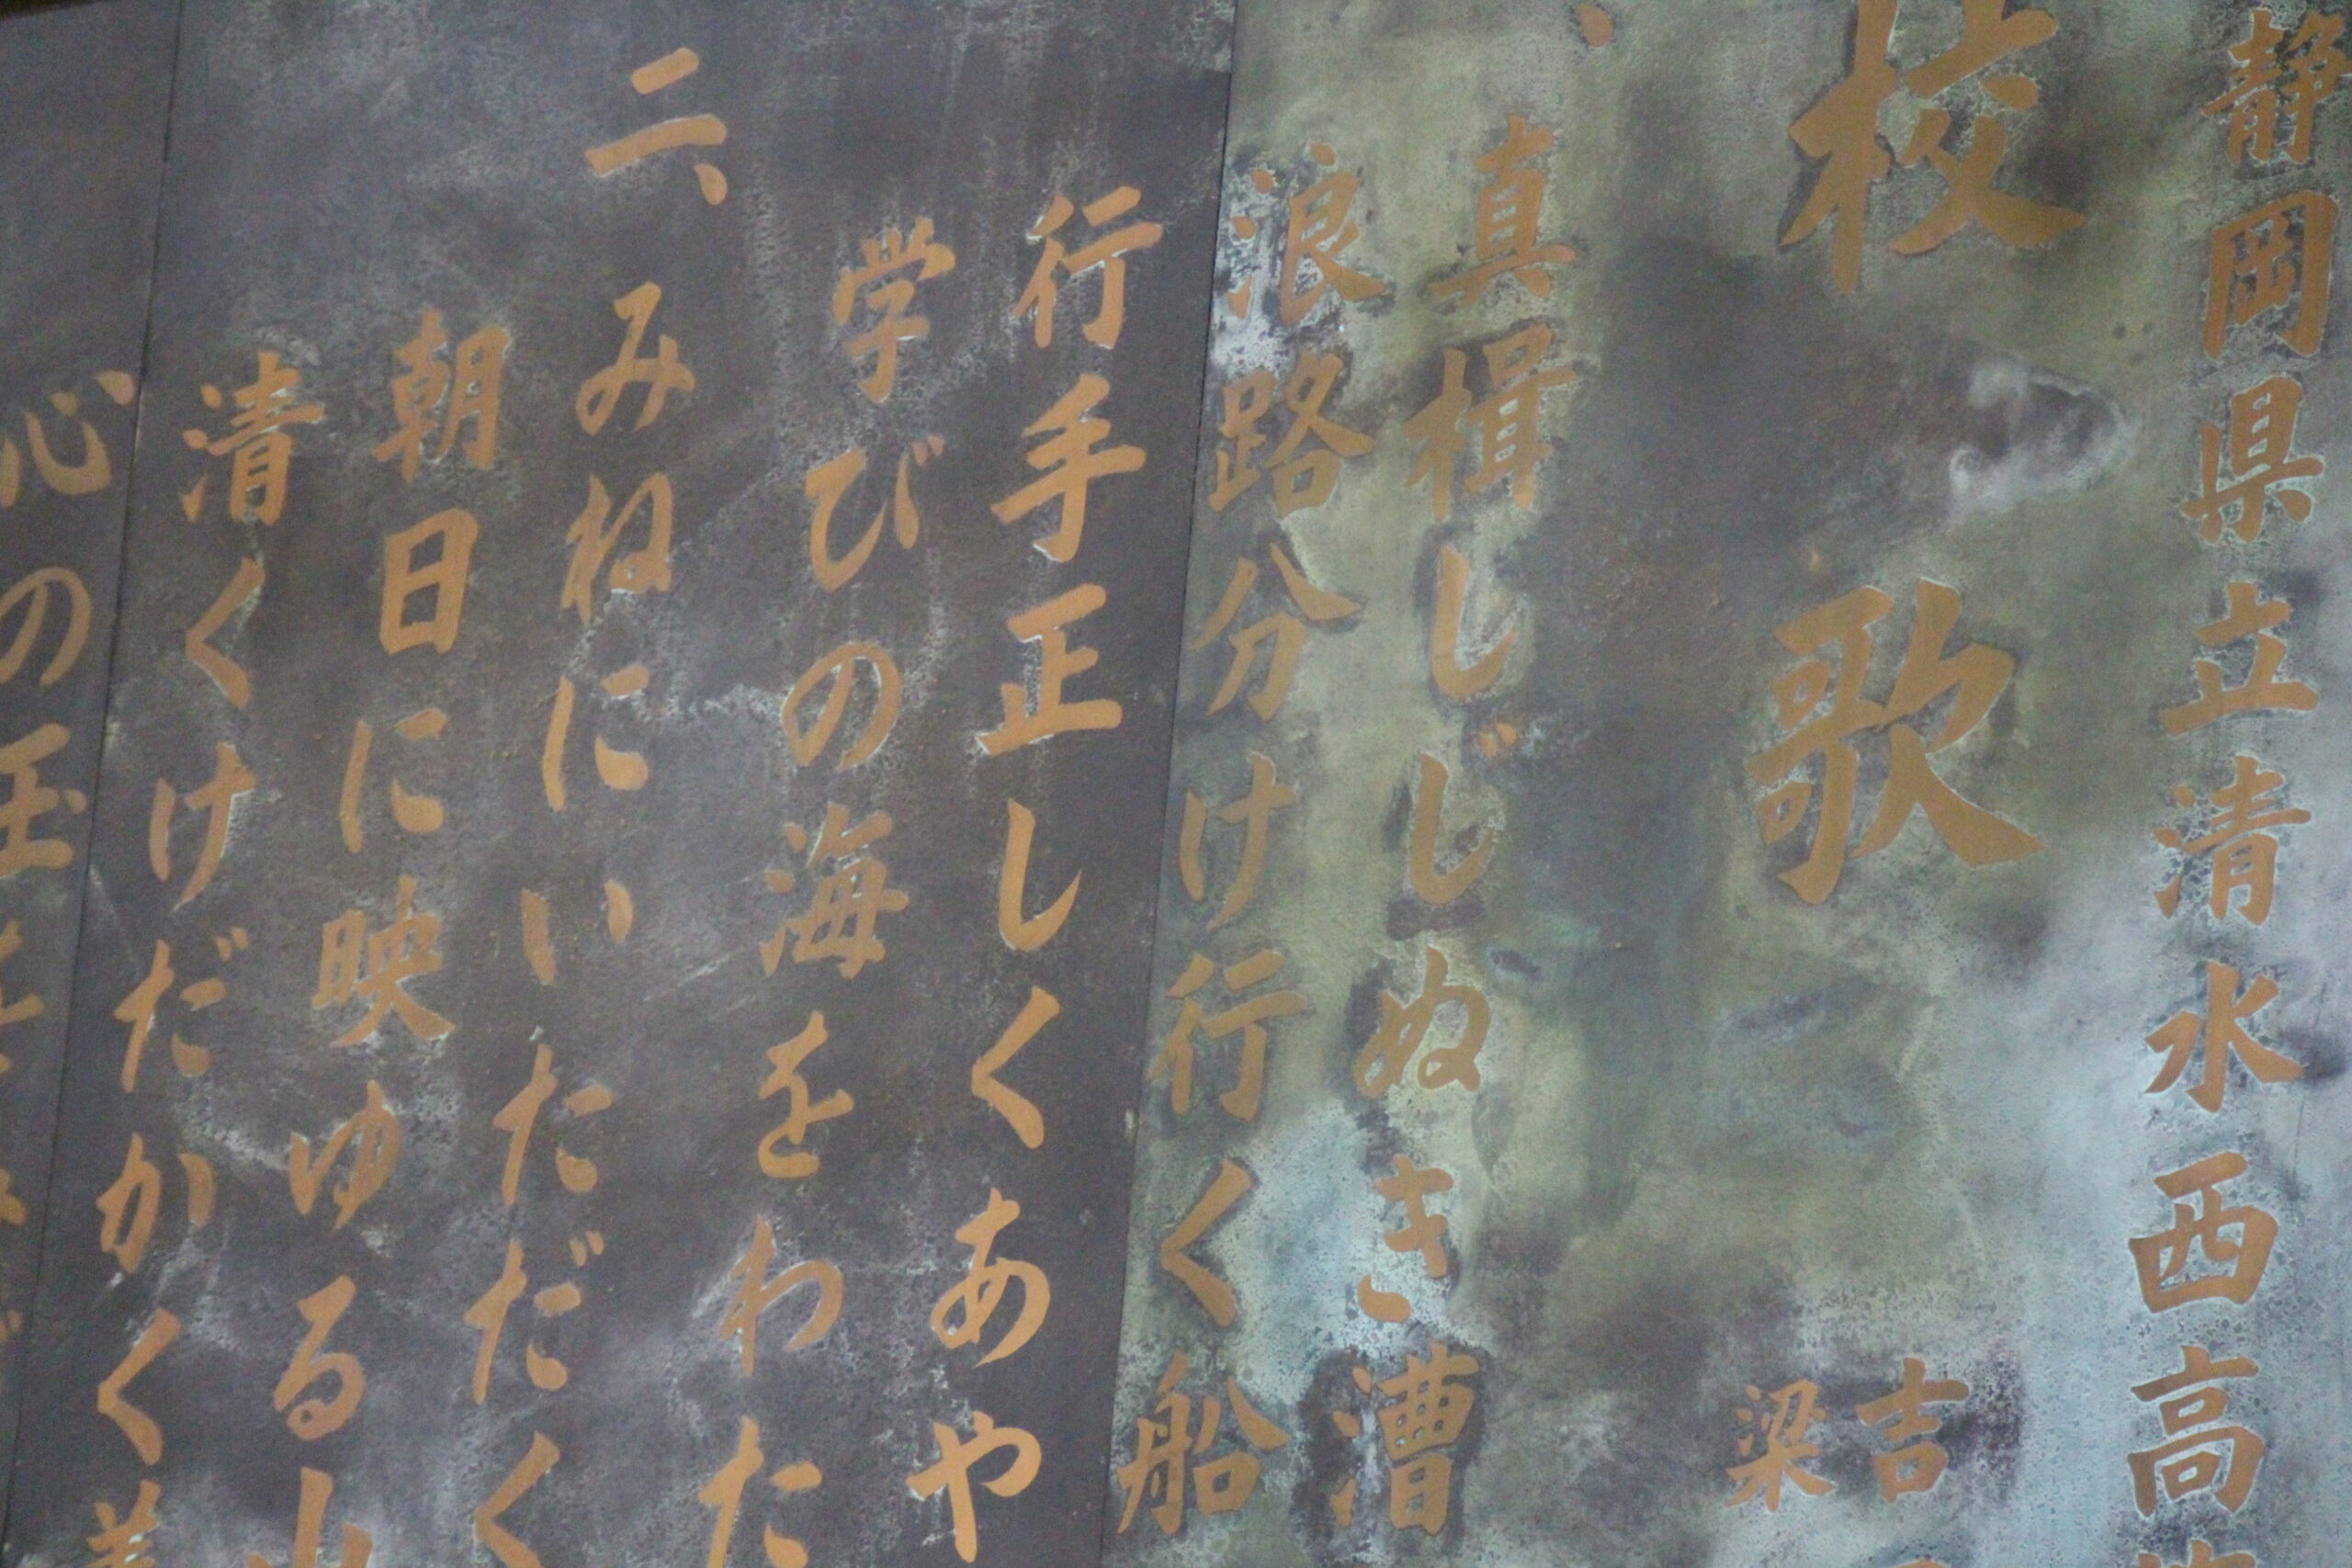 静岡県立清水西高
校歌
吉
梁
真楫しじぬき漕
浪路分け行く船
行手正しくあや
学びの海をわた
二、みねにいただく
朝日に映ゆる
清くけだかく
心の玉